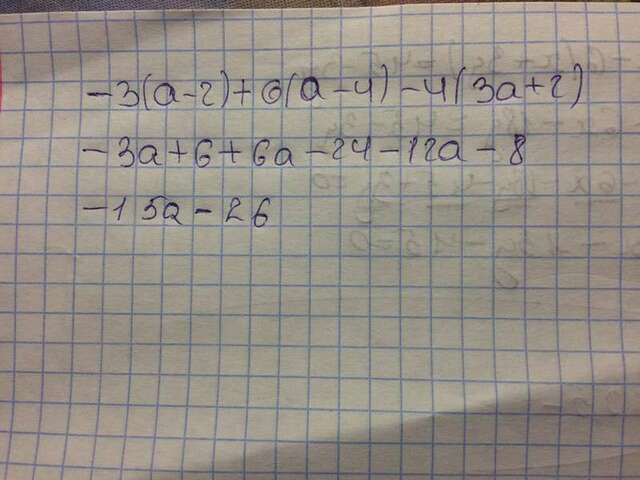 -3(a-2)+6(a-4)-4(3a+2)
-3a+6+6a-24-12a-8
-15a-26